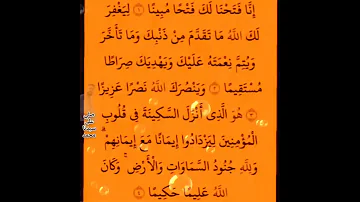 إِنَّا فَتَحْنَا لَكَ فَتْحًا مُبِينًا ۝١ لِيَغْفِرَ
لَكَ اللَّهُ مَا تَقَدَّمَ مِنْ ذَنْبِكَ وَمَا تَأَخَّرَ
وَيُتِمَّ نِعْمَتَهُ عَلَيْكَ وَيَهْدِيَكَ صِرَاطًا
مُسْتَقِيمًا ۝٢ وَيَنْصُرَكَ اللَّهُ نَصْرًا عَزِيزًا
۝٣ هُوَ الَّذِي أَنْزَلَ السَّكِينَةَ فِي قُلُوبِ
الْمُؤْمِنِينَ لِيَزْدَادُوا إِيمَانًا مَعَ إِيمَانِهِمْ ۗ
وَلِلَّهِ جُنُودُ السَّمَاوَاتِ وَالْأَرْضِ ۚ وَكَانَ
اللَّهُ عَلِيمًا حَكِيمًا ۝٤